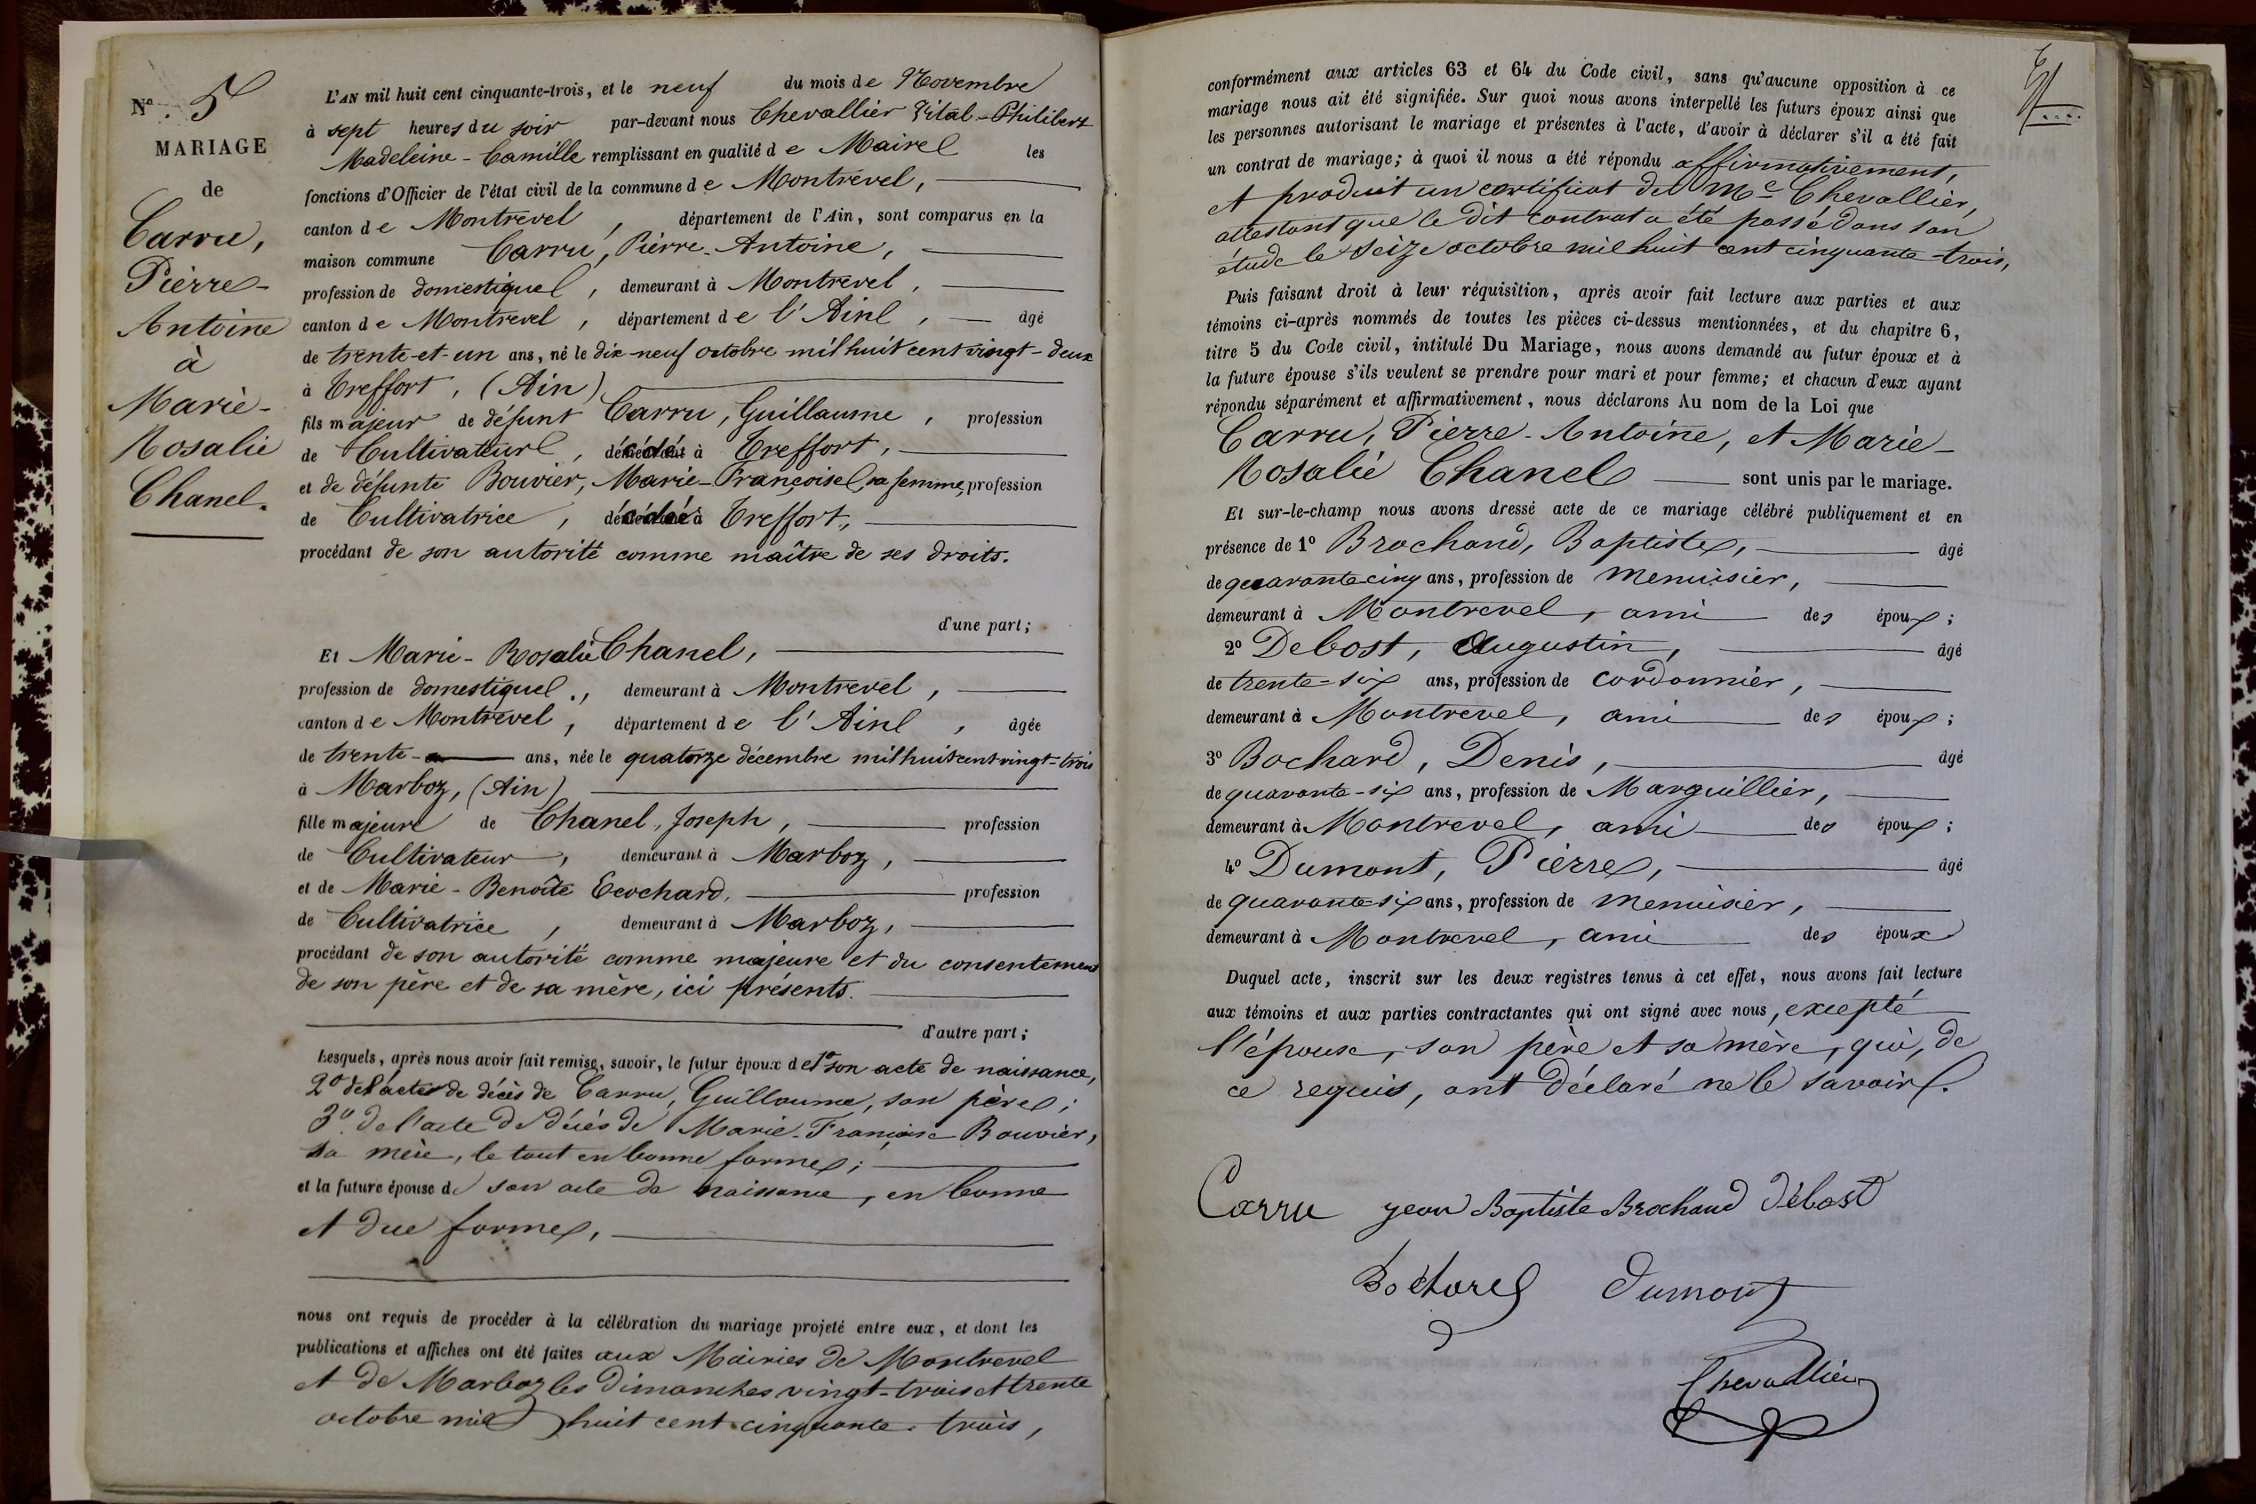 N° 5
MARIAGE
de
Carru,
Pierre-
Antoine
à
Marie-
Rosalie
Chanel.
L'AN mil huit cent cinquante-trois, et le neuf du mois de Novembre
à sept heures du soir par-devant nous Chevallier Vital-Philibert
Madeleine-Camille remplissant en qualité de Maire les
fonctions d'Officier de l'état civil de la commune de Montrevel,
canton de Montrevel, département de l'Ain, sont comparus en la
maison commune Carru, Pierre-Antoine,
profession de domestique, demeurant à Montrevel,
canton de Montrevel, département de l'Ain, âgé
de trente-et-un ans, né le dix-neuf octobre mil huit cent vingt-deux
à Treffort, (Ain)
fils majeur de défunt Carru, Guillaume, profession
de Cultivateur, décédé à Treffort,
et de défunte Bouvier, Marie-Françoise, sa femme, profession
de Cultivatrice, décédée à Treffort,
procédant de son autorité comme maître de ses droits.
d'une part;
Et Marie-Rosalie Chanel,
profession de domestique, demeurant à Montrevel,
canton de Montrevel, département de l'Ain, âgée
de trente ans, née le quatorze décembre mil huit cent vingt-trois
à Marboz, (Ain)
fille majeure de Chanel, Joseph, profession
de Cultivateur, demeurant à Marboz,
et de Marie-Benoîte Ecochard, profession
de Cultivatrice, demeurant à Marboz,
procédant de son autorité comme majeure et du consentement
de son père et de sa mère, ici présents.
d'autre part;
Lesquels, après nous avoir fait remise, savoir, le futur époux de 1° son acte de naissance,
2° de l'acte de décès de Carru, Guillaume, son père;
3° de l'acte de décès de Marie-Françoise Bouvier,
sa mère, le tout en bonne forme;
et la future épouse de son acte de naissance, en bonne
et due forme,
nous ont requis de procéder à la célébration du mariage projeté entre eux, et dont les
publications et affiches ont été faites aux Mairies de Montrevel
et de Marboz les dimanches vingt-trois et trente
octobre mil huit cent cinquante-trois,
conformément aux articles 63 et 64 du Code civil, sans qu'aucune opposition à ce
mariage nous ait été signifiée. Sur quoi nous avons interpellé les futurs époux ainsi que
les personnes autorisant le mariage et présentes à l'acte, d'avoir à déclarer s'il a été fait
un contrat de mariage; à quoi il nous a été répondu affirmativement,
et produit un certificat de Me Chevallier,
attestant que le dit contrat a été passé dans son
étude le seize octobre mil huit cent cinquante-trois,
Puis faisant droit à leur réquisition, après avoir fait lecture aux parties et aux
témoins ci-après nommés de toutes les pièces ci-dessus mentionnées, et du chapitre 6,
titre 5 du Code civil, intitulé Du Mariage, nous avons demandé au futur époux et à
la future épouse s'ils veulent se prendre pour mari et pour femme; et chacun d'eux ayant
répondu séparément et affirmativement, nous déclarons Au nom de la Loi que
Carru, Pierre-Antoine, et Marie-
Rosalie Chanel sont unis par le mariage.
Et sur-le-champ nous avons dressé acte de ce mariage célébré publiquement et en
présence de 1° Brochand, Baptiste, âgé
de quarante cinq ans, profession de menuisier,
demeurant à Montrevel, ami des époux;
2° Debost, Augustin, âgé
de trente-six ans, profession de cordonnier,
demeurant à Montrevel, ami des époux;
3° Bochard, Denis, âgé
de quarante-six ans, profession de Marguillier,
demeurant à Montrevel, ami des époux;
4° Dumont, Pierre, âgé
de quarante-six ans, profession de menuisier,
demeurant à Montrevel, ami des époux
Duquel acte, inscrit sur les deux registres tenus à cet effet, nous avons fait lecture
aux témoins et aux parties contractantes qui ont signé avec nous, excepté
l'épouse, son père et sa mère, qui, de
ce requis, ont déclaré ne le savoir.
Carru jean Baptiste Brochand Débost
Bochard Dumont
Chevallier